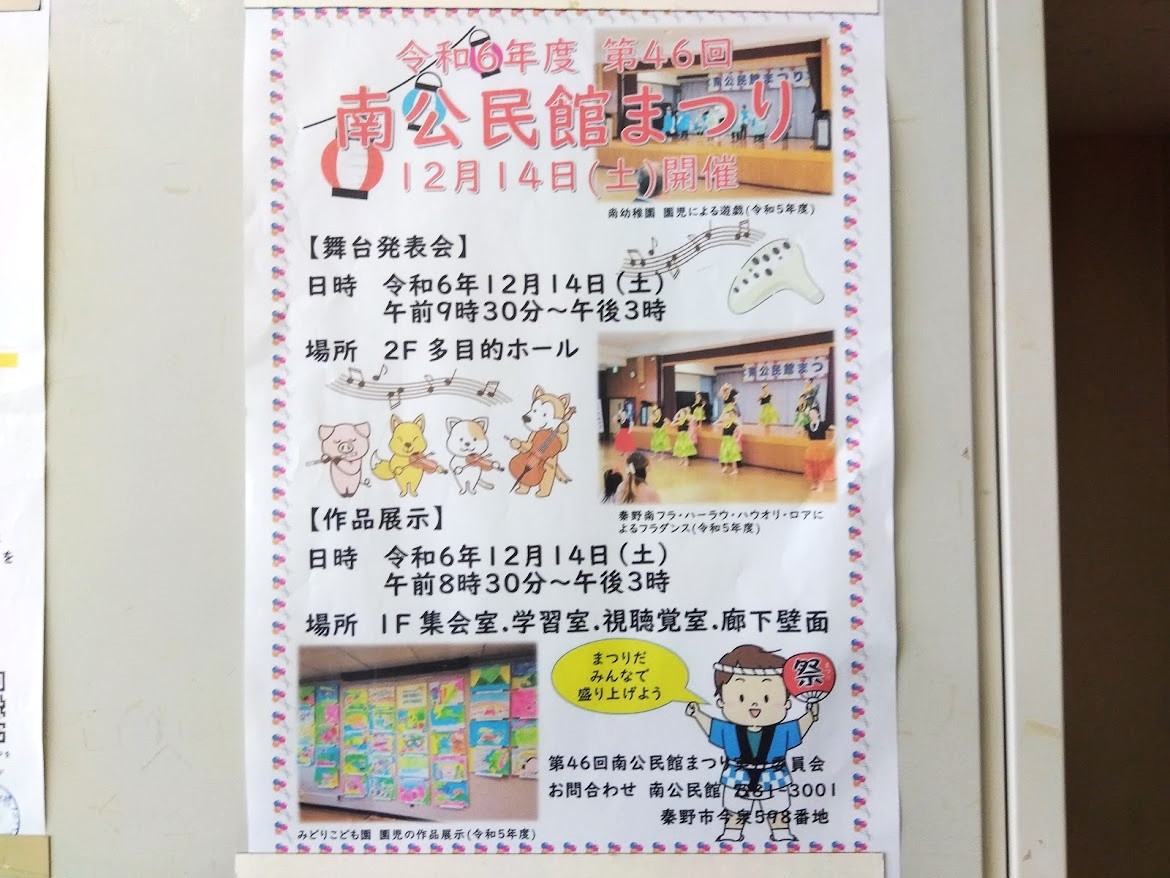 令和6年度 第46回
南公民館まつり
12月14日(土)開催
南公民館まつり
南幼稚園 園児による遊戯(令和5年度)
【舞台発表会】
日時 令和6年12月14日(土)
午前9時30分～午後3時
場所 2F 多目的ホール
南公民館まつ
秦野南フラ・ハーラウ・ハウオリ・ロアに
よるフラダンス(令和5年度)
【作品展示】
日時 令和6年12月14日(土)
午前8時30分～午後3時
場所 1F 集会室.学習室.視聴覚室.廊下壁面
まつりだ
みんなで
盛り上げよう
祭
第46回南公民館まつり実行委員会
お問合わせ 南公民館 ☎81-3001
秦野市今泉598番地
みどりこども園 園児の作品展示(令和5年度)
を